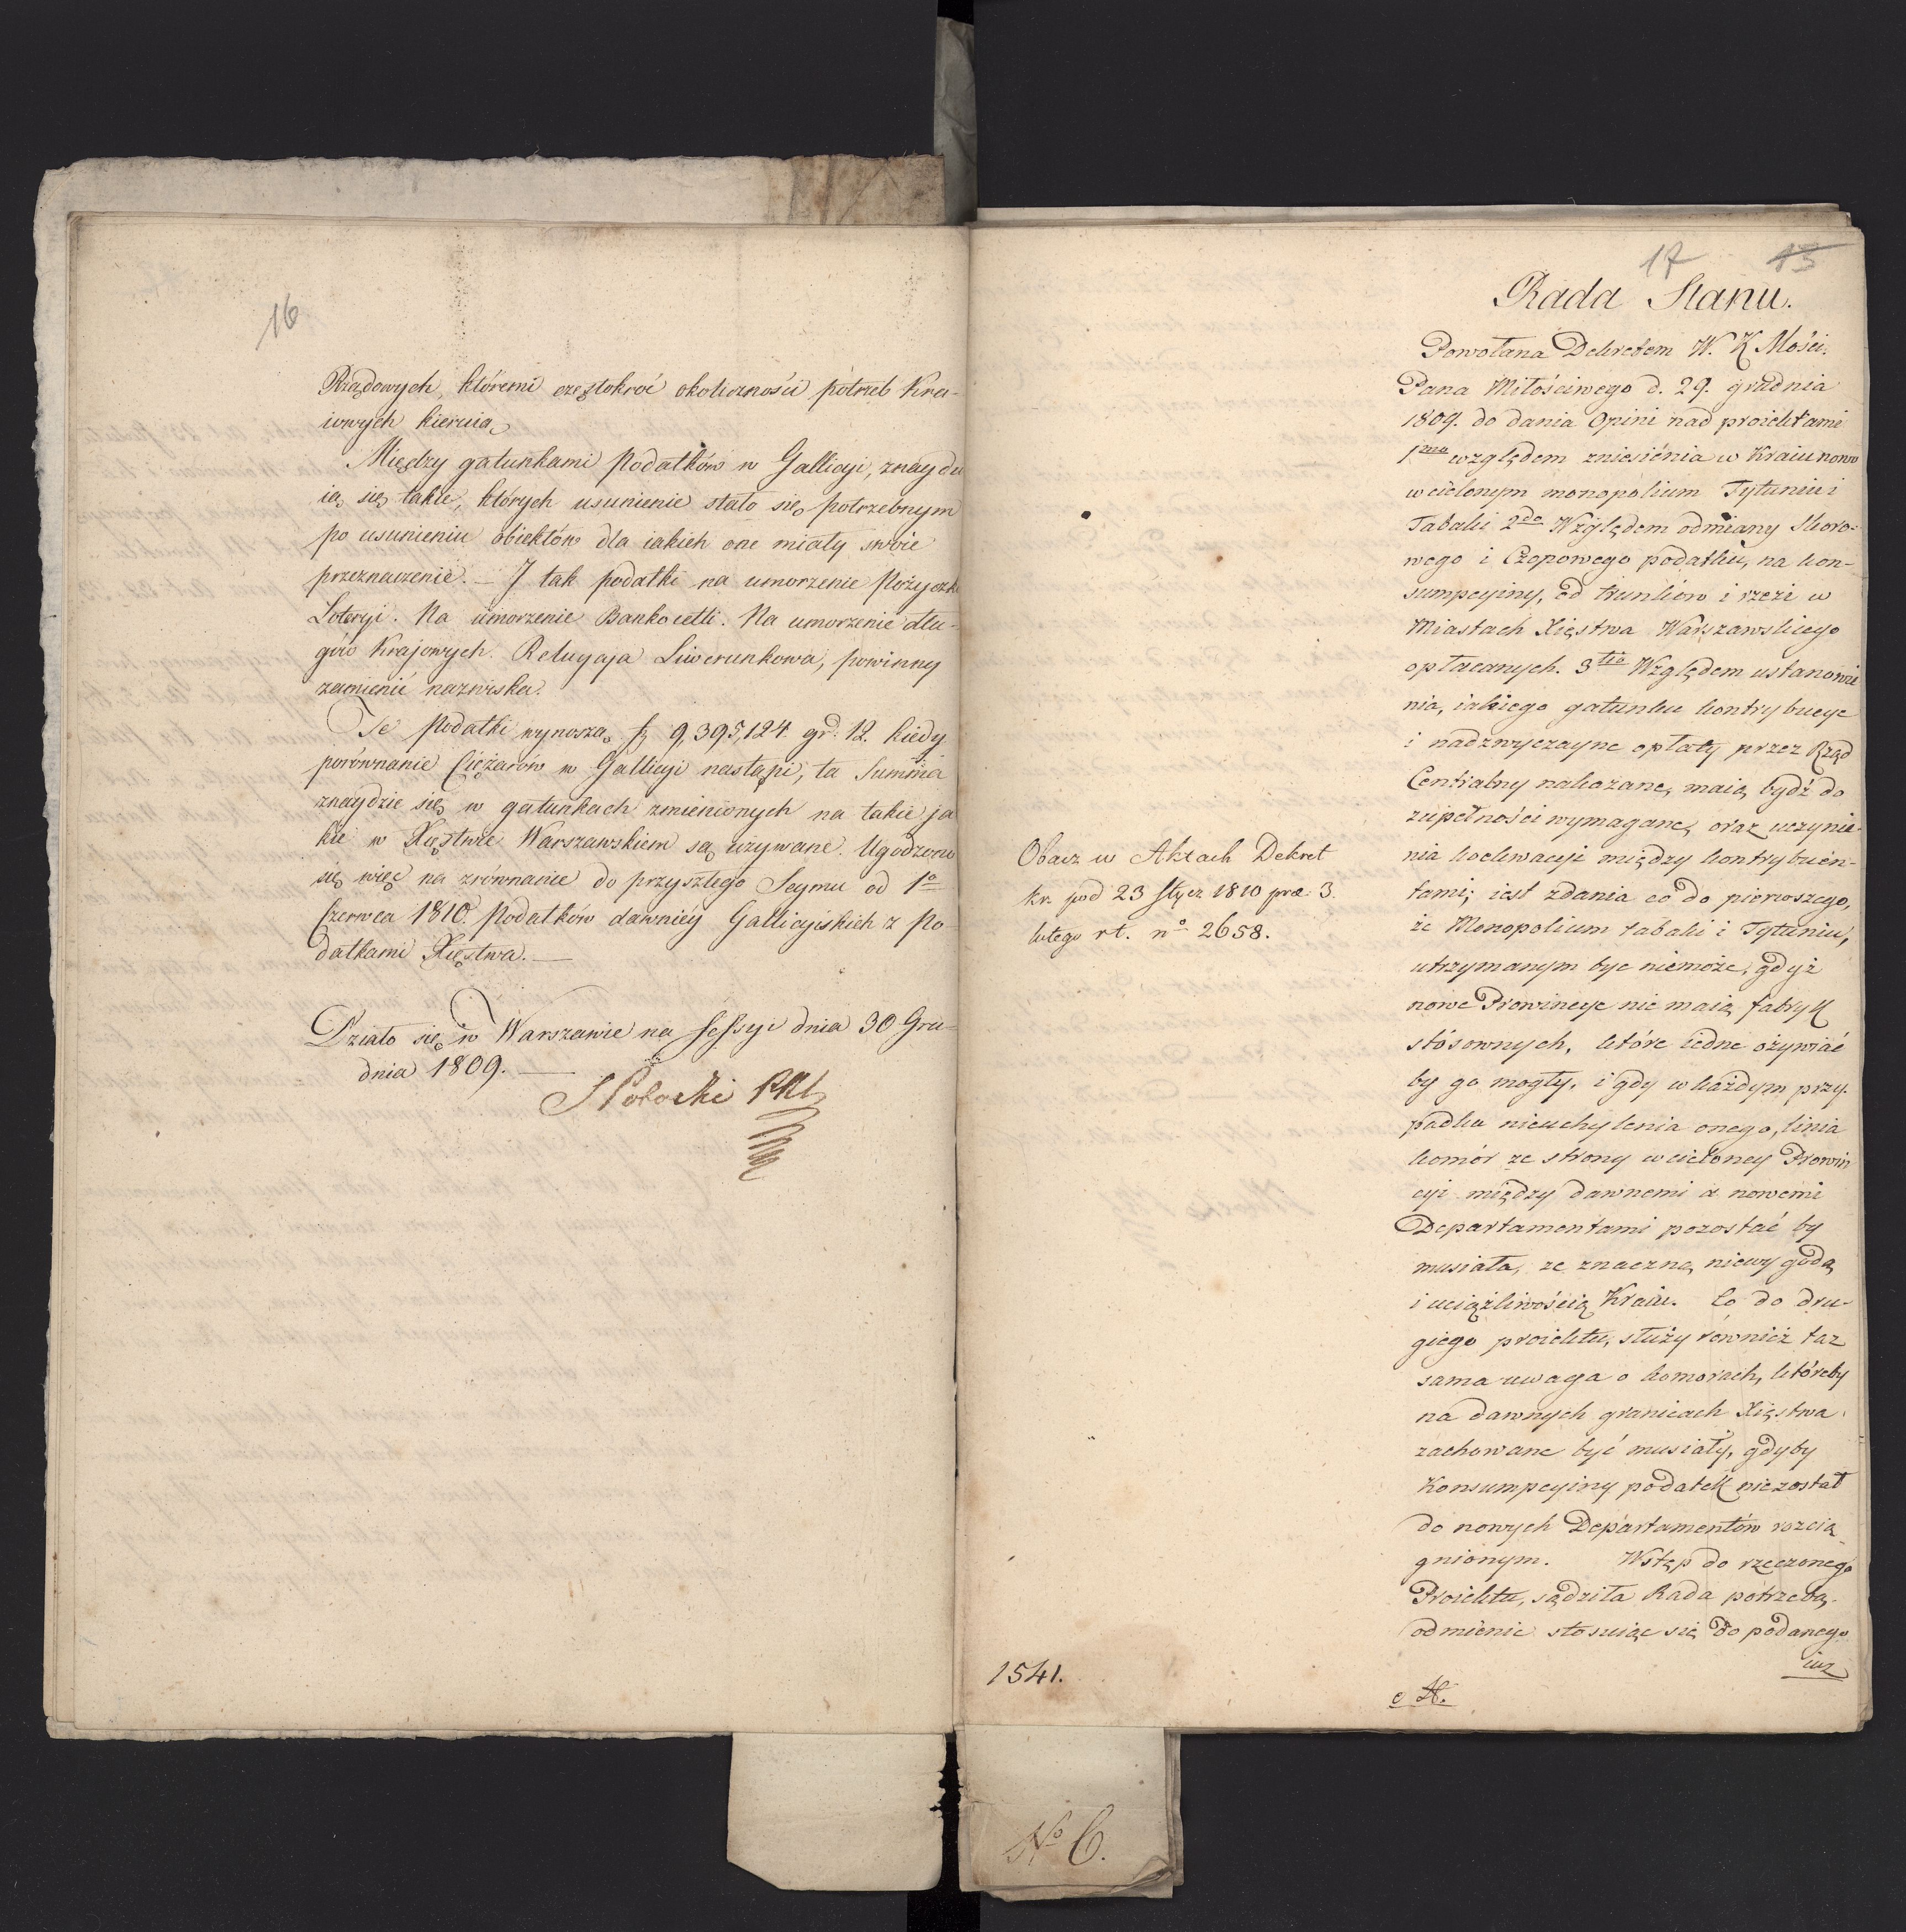 16
Rządowych, któremi częstokroć okoliczności potrzeb Kra-
iowych kieruią.
Między gatunkami podatków w Gallicyi, znaydu
ią się takie, których usunienie stało się potrzebnym
po usunieniu obiektów dla iakich one miały swoie
przeznaczenie. — I tak podatki na umorzenie Pożyczki
Loteryi. Na umorzenie Bankocetli. Na umorzenie dłu-
gów Krajowych. Reluycja Liwerunkowa, powinny
zamienić nazwiska.
Te podatki wynoszą fz 9,395,124. gr: 12. kiedy
porównanie Ciężarów w Gallicyi nastąpi, ta Summa
znaydzie się w gatunkach zmienionych na takie ja
kie w Xięstwie Warszawskiem są używane. Ugodzono
się więc na zrównanie do przyszłego Seymu od 1o
Czerwca 1810. Podatków dawniey Gallicyiskich z Po-
datkami Xięstwa. —
Działo się w Warszawie na Sessyi dnia 30 Gru-
dnia 1809. —
S Potocki
17 15
Rada Stanu.
Powołana Dekretem W. K Mości,
Pana Miłościwego d. 29. grudnia
1809. do dania Opini nad proiektami
1mo względem zniesienia w Kraiu nowo
wcielonym monopolium Tytuniu i
Tabaki 2do Względem odmiany Skoro-
wego i Czopowego podatku, na kon-
sumpcyiny, od trunków i rzezi w
Miastach Xięstwa Warszawskiego
opłacanych. 3tio Względem ustanowie
nia, iakiego gatunku kontrybucye
i nadzwyczayne opłaty przez Rząd
Centralny nakazane, maią bydź do
zupełności wymagane, oraz uczynie-
nia koekwacyi między kontrybuen-
tami; iest zdania co do pierwszego,
że Monopolium tabaki i Tytuniu,
utrzymanym być niemoże, gdyż
nowe Prowincye nie maią fabryk
stósownych, które iedne ożywiać
by go mogły, i gdy w każdym przy-
padku nieuchylenia onego, linia
komór ze strony wcieloney Prowin
cyi między dawnemi a nowemi
Departamentami pozostać by
musiała, ze znaczną niewygodą
i uciążliwością Kraiu. Co do dru-
giego proiektu, służy również taz
sama uwaga o komorach, któreby
na dawnych granicach Xięstwa
zachowane być musiały, gdyby
Konsumpcyiny podatek niezostał
do nowych Departamentów rozcią
gnionym. Wstęp do rzeczonego
Proiektu, sądziła Rada potrzebą,
odmienić stosuiąc się do podanego
iuz
Obacz w Aktach Dekret
kr. pod 23 Stycz 1810 prae: 3.
lutego rt. no 2658.
1541.
No 6.